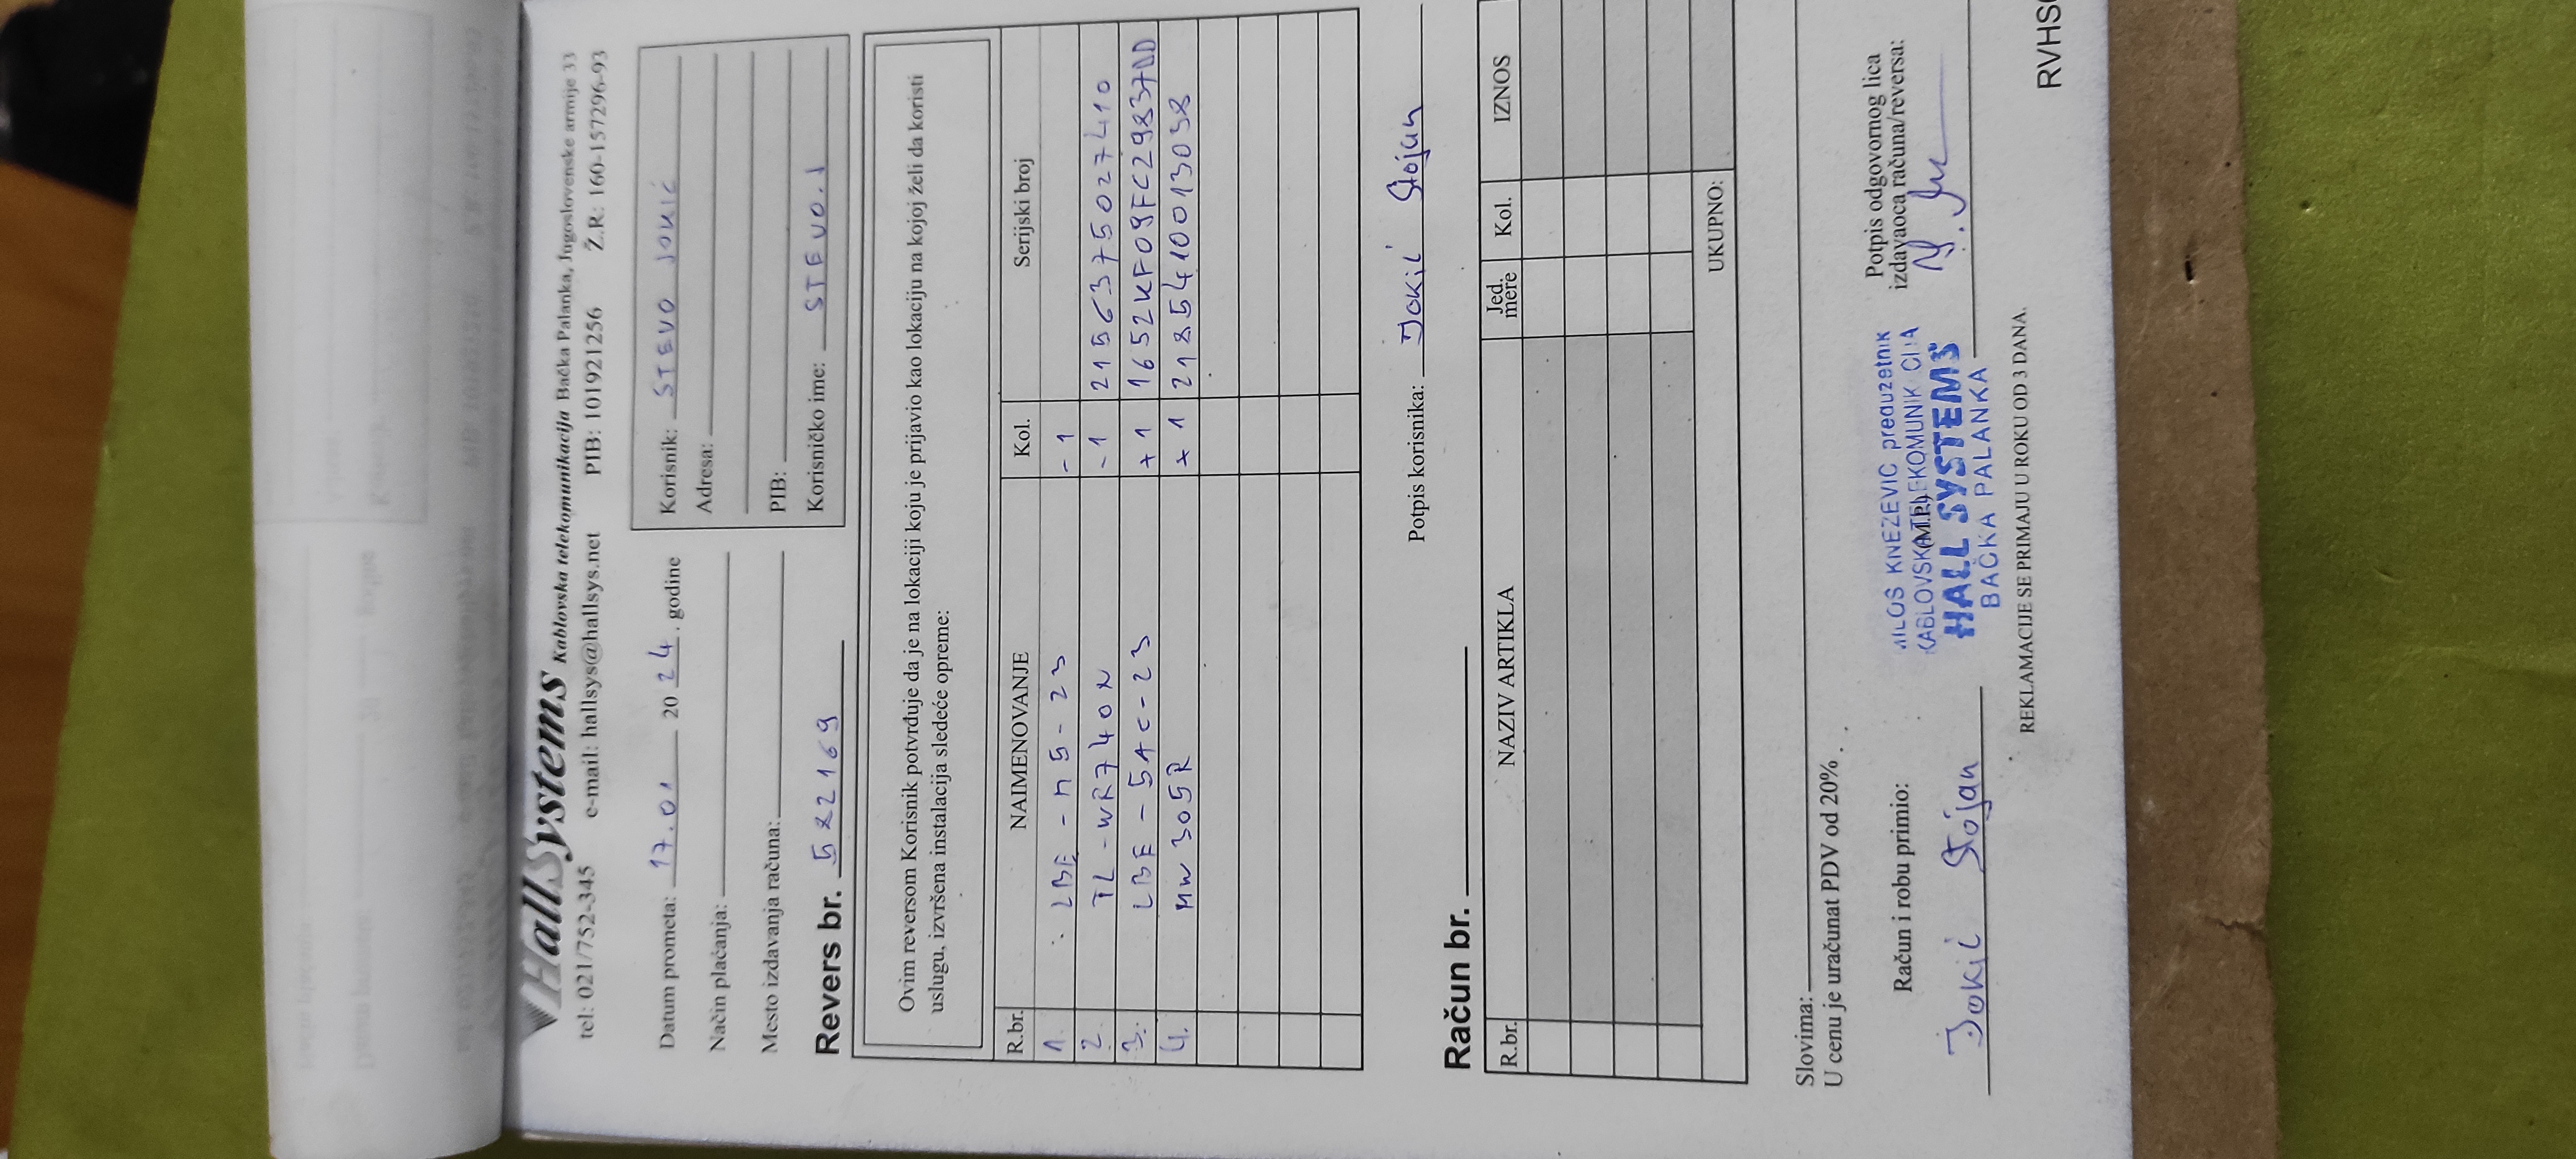 HallSystems Kablovska telekomunikacija Bačka Palanka, Jugoslovenske armije 33
tel: 021/752-345 e-mail: hallsys@hallsys.net PIB: 101921256 Ž.R: 160-157296-93
Datum prometa: 17.01 2024. godine
Način plaćanja:
Mesto izdavanja računa:
Korisnik: STEVO JOKIĆ
Adresa:
PIB:
Korisničko ime: STEVO.J
Revers br. 522169
Ovim reversom Korisnik potvrđuje da je na lokaciji koju je prijavio kao lokaciju na kojoj želi da koristi
uslugu, izvršena instalacija sledeće opreme:
R.br. NAIMENOVANJE Kol. Serijski broj
1. LBE-M5-23 -1
2. TL-WR740N -1 2156375027410
3. LBE-5AC-23 +1 1652KF09FC29837DD
4. MW305R +1 2185410013038
Potpis korisnika: Jokić Stojan
Račun br.
R.br. NAZIV ARTIKLA Jed. mere Kol. IZNOS
UKUPNO:
Slovima:
U cenu je uračunat PDV od 20%.
Račun i robu primio:
Jokić Stojan
MILOS KNEZEVIC preduzetnik
KABLOVSKA TELEKOMUNIK CIJA
(M.P.)
HALL SYSTEMS
BAČKA PALANKA
Potpis odgovornog lica
izdavaoca računa/reversa:
REKLAMACIJE SE PRIMAJU U ROKU OD 3 DANA.